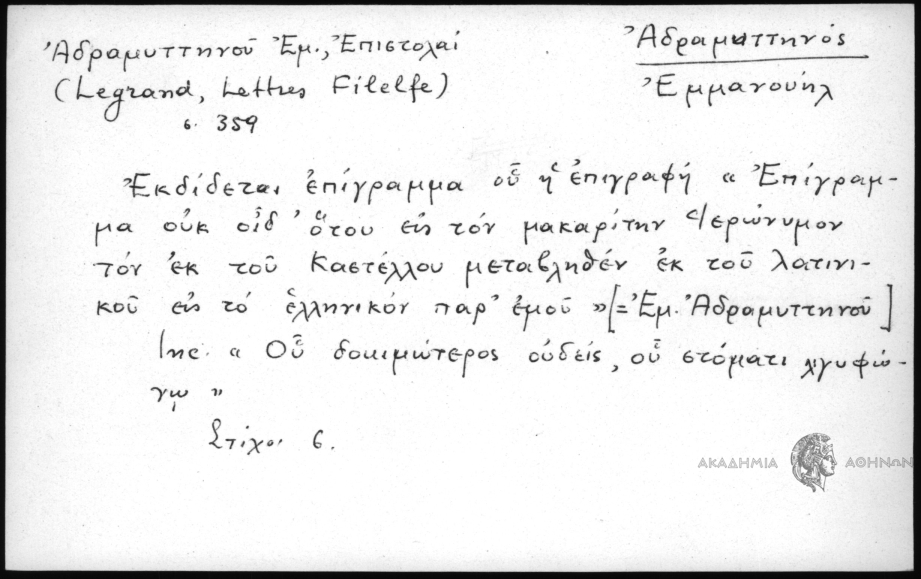 Ἀδραμυττηνοῦ Ἐμ., Ἐπιστολαί
(Legrand, Lettres Filelfe)
σ. 359
Ἀδραμυττηνός
Ἐμμανουήλ
Ἐκδίδεται ἐπίγραμμα οὗ ἡ ἐπιγραφή « Ἐπίγραμ-
μα οὐκ οἶδ' ὅτου εἰς τόν μακαρίτην Ἱερώνυμον
τόν ἐκ τοῦ Καστέλλου μεταβληθέν ἐκ τοῦ λατινι-
κοῦ εἰς τό ἑλληνικόν παρ' ἐμοῦ » [= Ἐμ. Ἀδραμυττηνοῦ]
Inc. « Οὗ δοκιμώτερος οὐδείς, οὗ στόματι λιγυφώ-
νῳ »
Στίχοι 6.
ΑΚΑΔΗΜΙΑ ΑΘΗΝΩΝ